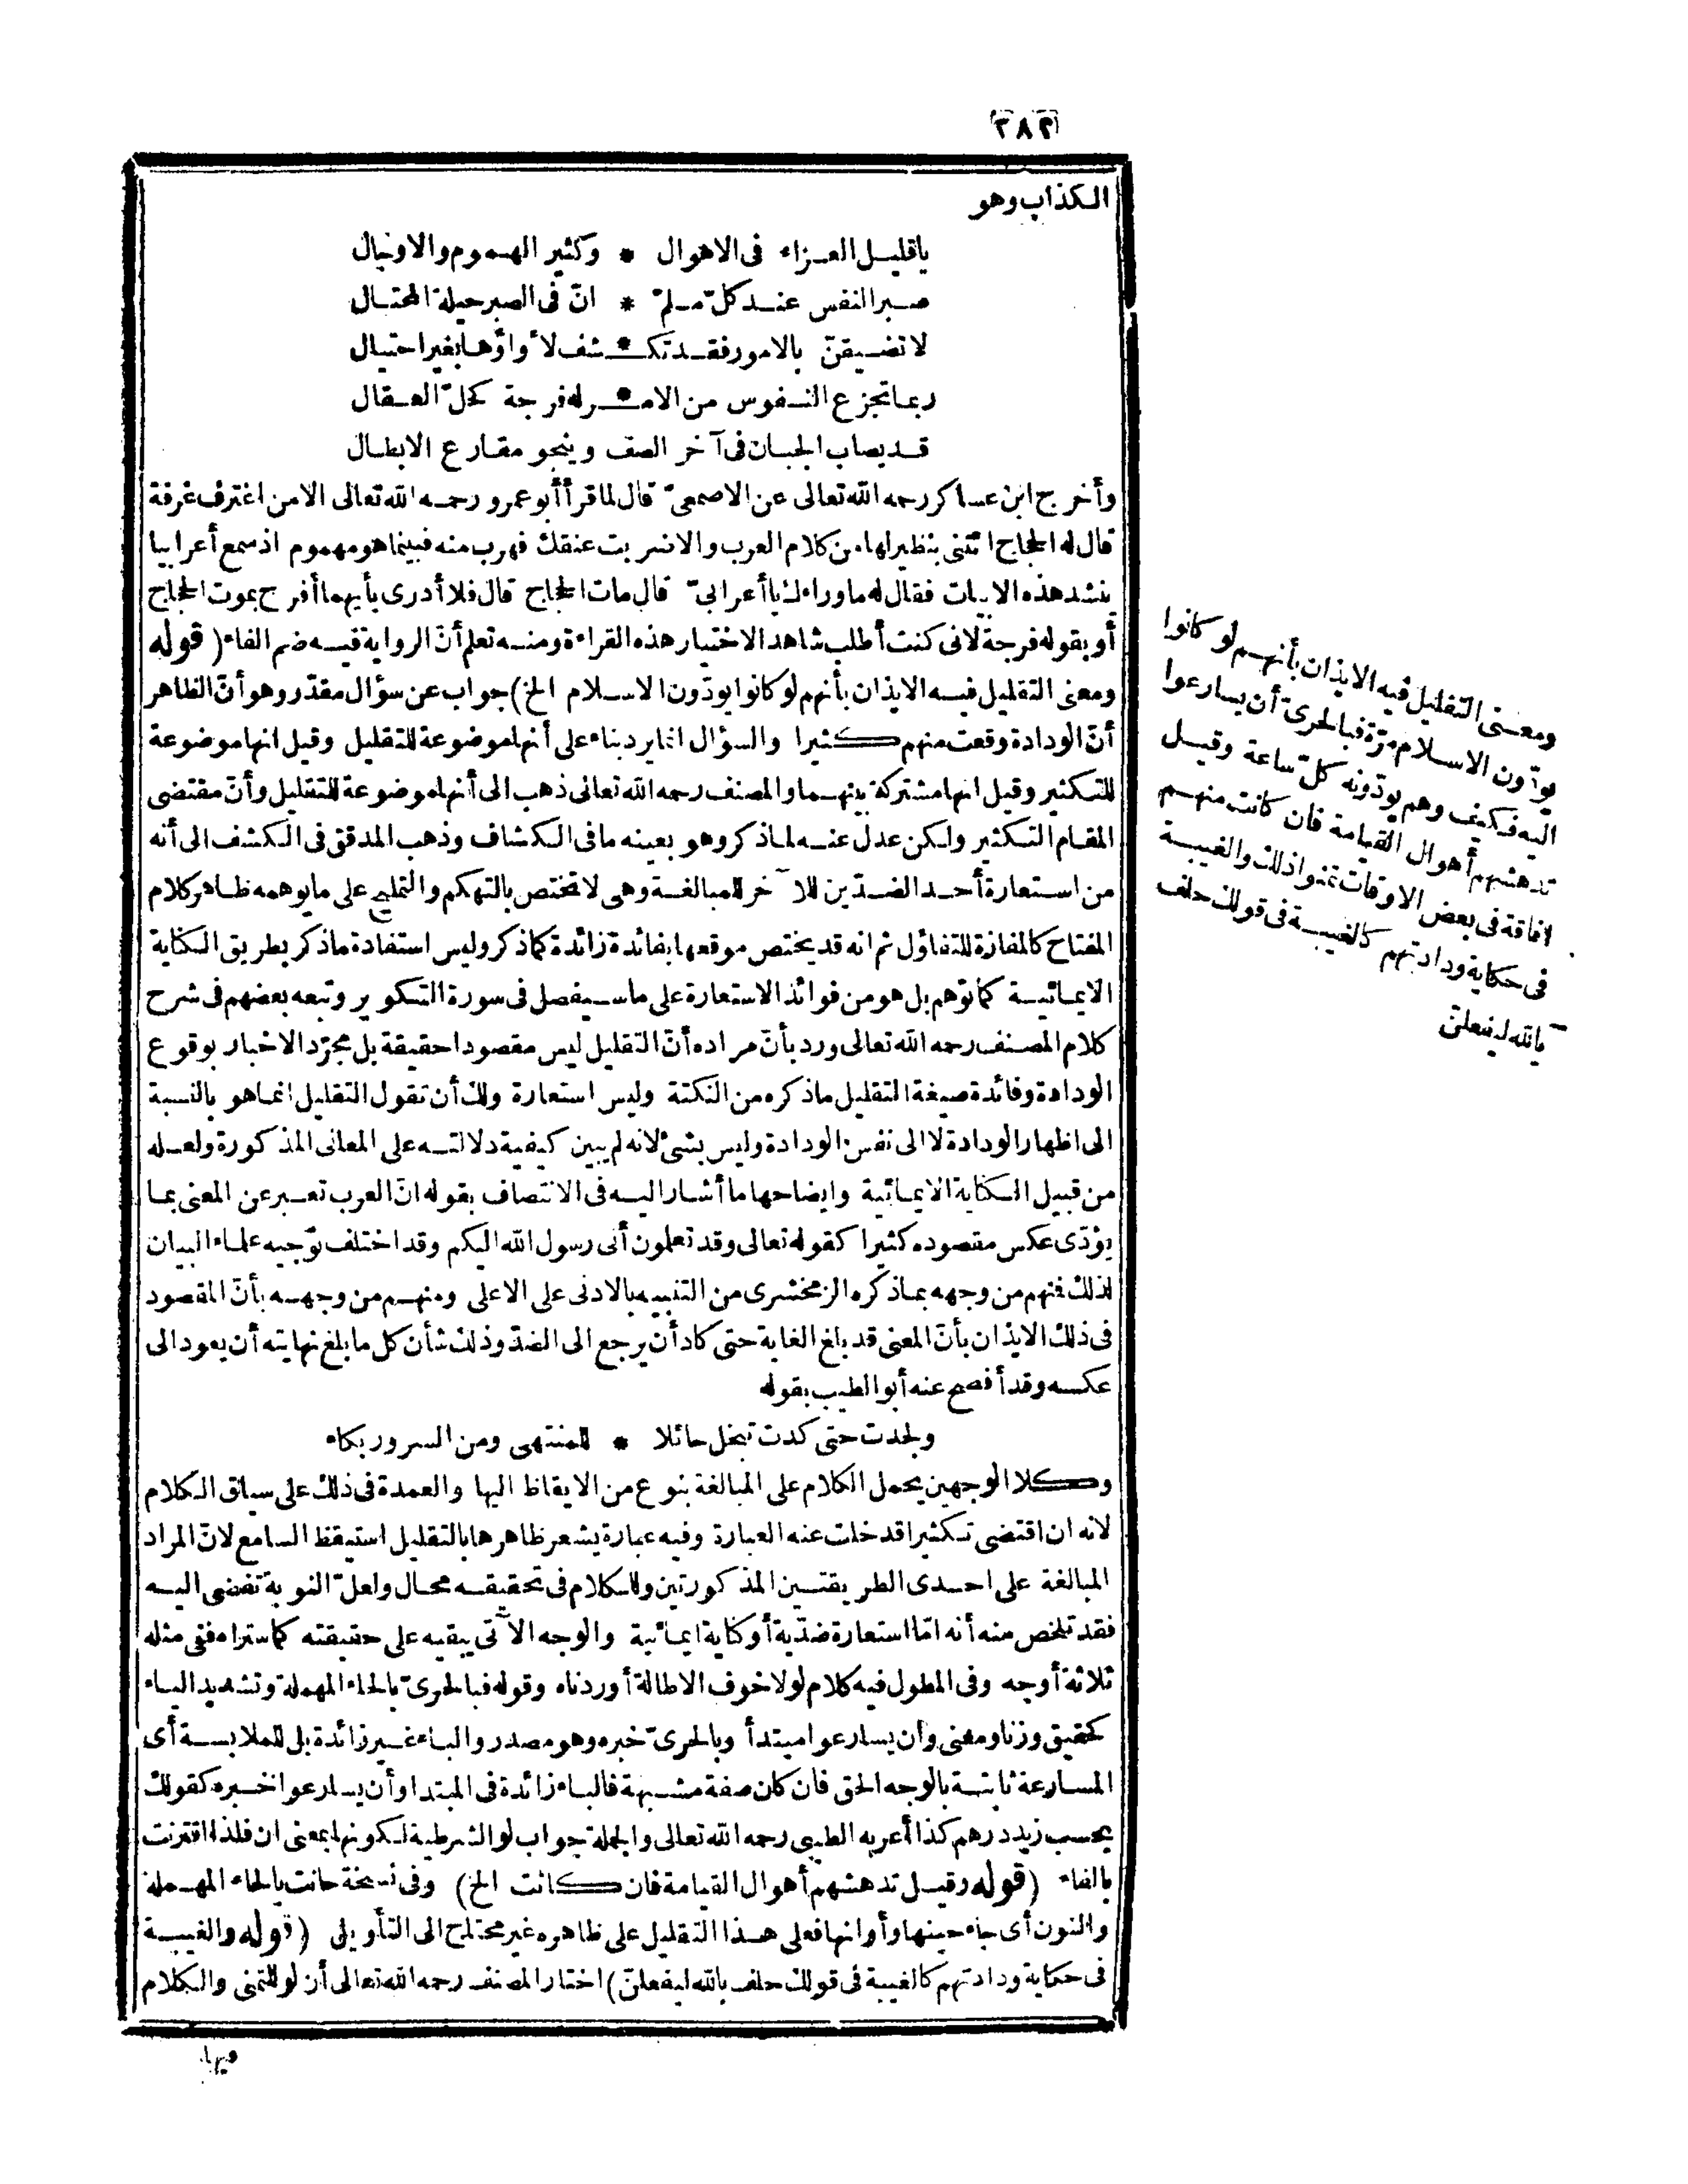 ٢٨٢
الكذاب وهو
ياقليل العزاء فى الاهوال * وكثير الهموم والاوجال
صبر النفس عند كلّ ملمّ * انّ فى الصبر حيلة المحتال
لاتضيقنّ بالامور فقد تكـ * ـشف لأواؤها بغير احتيال
ربما تجزع النفوس من الامـ * ـر له فرجة كحلّ العقال
قد يصاب الجبان فى آخر الصف وينجو مقارع الابطال
وأخرج ابن عساكر رحمه الله تعالى عن الاصمعىّ قال لما قرأ أبو عمرو رحمه الله تعالى الا من اغترف غرفة
قال له الحجاج ائتنى بنظير لها من كلام العرب والا ضربت عنقك فهرب منه فبينما هو مهموم اذ سمع أعرابيا
ينشد هذه الابيات فقال له ما وراءك يا أعرابىّ قال مات الحجاج قال فلا أدرى بأيهما أفرح بموت الحجاج
أو بقوله فرجة لانى كنت أطلب شاهد الاختيار هذه القراءة ومنه تعلم أنّ الرواية فيه ضم الفاء (قوله
ومعنى التقليل فيه الايذان بأنهم لو كانوا يودّون الاسلام الخ) جواب عن سؤال مقدّر وهو أنّ الظاهر
أنّ الودادة وقعت منهم كثيرا والسؤال انما يرد بناء على أنها موضوعة للتقليل وقيل انها موضوعة
للتكثير وقيل انها مشتركة بينهما والمصنف رحمه الله تعالى ذهب الى أنها موضوعة للتقليل وأنّ مقتضى
المقام التكثير ولكن عدل عنه لما ذكر وهو بعينه ما فى الكشاف وذهب المدقق فى الكشف الى أنه
من استعارة أحد الضدّين للآخر للمبالغة وهى لا تختص بالتهكم والتمليح على ما يوهمه ظاهر كلام
المفتاح كالمفازة للتفاؤل ثم انه قد يختص موقعها بفائدة زائدة كما ذكر وليس استفادة ما ذكر بطريق الكناية
الايمائية كما توهم بل هو من فوائد الاستعارة على ما سيفصل فى سورة التكوير وتبعه بعضهم فى شرح
كلام المصنف رحمه الله تعالى ورد بأنّ مراده أنّ التقليل ليس مقصودا حقيقة بل مجرّد الاخبار بوقوع
الودادة وفائدة صيغة التقليل ما ذكره من النكتة وليس استعارة ولك أن تقول التقليل انما هو بالنسبة
الى اظهار الودادة لا الى نفس الودادة وليس بشئ لانه لم يبين كيفية دلالته على المعانى المذكورة ولعله
من قبيل الكناية الايمائية وايضاحها ما أشار اليه فى الانتصاف بقوله انّ العرب تعبر عن المعنى بما
يؤدّى عكس مقصوده كثيرا كقوله تعالى وقد تعلمون أنى رسول الله اليكم وقد اختلف توجيه علماء البيان
لذلك فمنهم من وجهه بما ذكره الزمخشرى من التنبيه بالادنى على الاعلى ومنهم من وجهه بأنّ المقصود
فى ذلك الايذان بأنّ المعنى قد بلغ الغاية حتى كاد أن يرجع الى الضدّ وذلك شأن كل ما بلغ نهايته أن يعود الى
عكسه وقد أفصح عنه أبو الطيب بقوله
ولجدت حتى كدت تبخل حائلا * للمنتهى ومن السرور بكاء
وكلا الوجهين يحمل الكلام على المبالغة بنوع من الايقاظ اليها والعمدة فى ذلك على سياق الكلام
لانه ان اقتضى تكثيرا قد خلت عنه العبارة وفيه عبارة يشعر ظاهرها بالتقليل استيقظ السامع لانّ المراد
المبالغة على احدى الطريقتين المذكورتين وللكلام فى تحقيقه مجال ولعلّ النوبة تفضى اليه
فقد تلخص منه أنه امّا استعارة ضدّية أو كناية ايمائية والوجه الآتى يبقيه على حقيقته كما ستراه ففى مثله
ثلاثة أوجه وفى المطول فيه كلام لولا خوف الاطالة أوردناه وقوله فبالحرىّ بالحاء المهملة وتشديد الياء
كحقيق وزنا ومعنى وأن يسارعوا مبتدأ وبالحرىّ خبره وهو مصدر والباء غير زائدة بل للملابسة أى
المسارعة ثابتة بالوجه الحق فان كان صفة مشبهة فالباء زائدة فى المبتدا وأن يسارعوا خبره كقولك
بحسب زيد درهم كذا أعربه الطيبى رحمه الله تعالى والجملة جواب لو الشرطية لكونها بمعنى ان فلذا اقترنت
بالفاء (قوله وقيل تدهشهم أهوال القيامة فان كانت الخ) وفى نسخة حانت بالحاء المهملة
والنون أى جاء حينها وأوانها فعلى هذا التقليل على ظاهره غير محتاج الى التأويل (قوله والغيبة
فى حكاية ودادتهم كالغيبة فى قولك حلف بالله ليفعلنّ) اختار المصنف رحمه الله تعالى أن لو للتمنى والكلام
فيها
ومعنى التقليل فيه الايذان بأنهم لو كانوا
يودّون الاسلام مرّة فبالحرىّ أن يسارعوا
اليه فكيف وهم يودّونه كلّ ساعة وقيل
تدهشهم أهوال القيامة فان كانت منهم
افاقة فى بعض الاوقات تمنوا ذلك والغيبة
فى حكاية ودادتهم كالغيبة فى قولك حلف
بالله ليفعلنّ